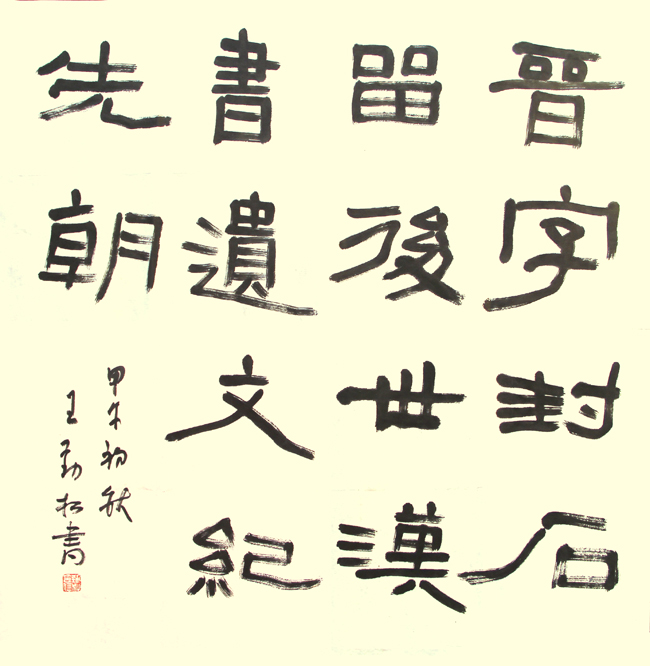 晉字封石
留後世漢
書遺文紀
先朝
甲午初秋
王勤松書